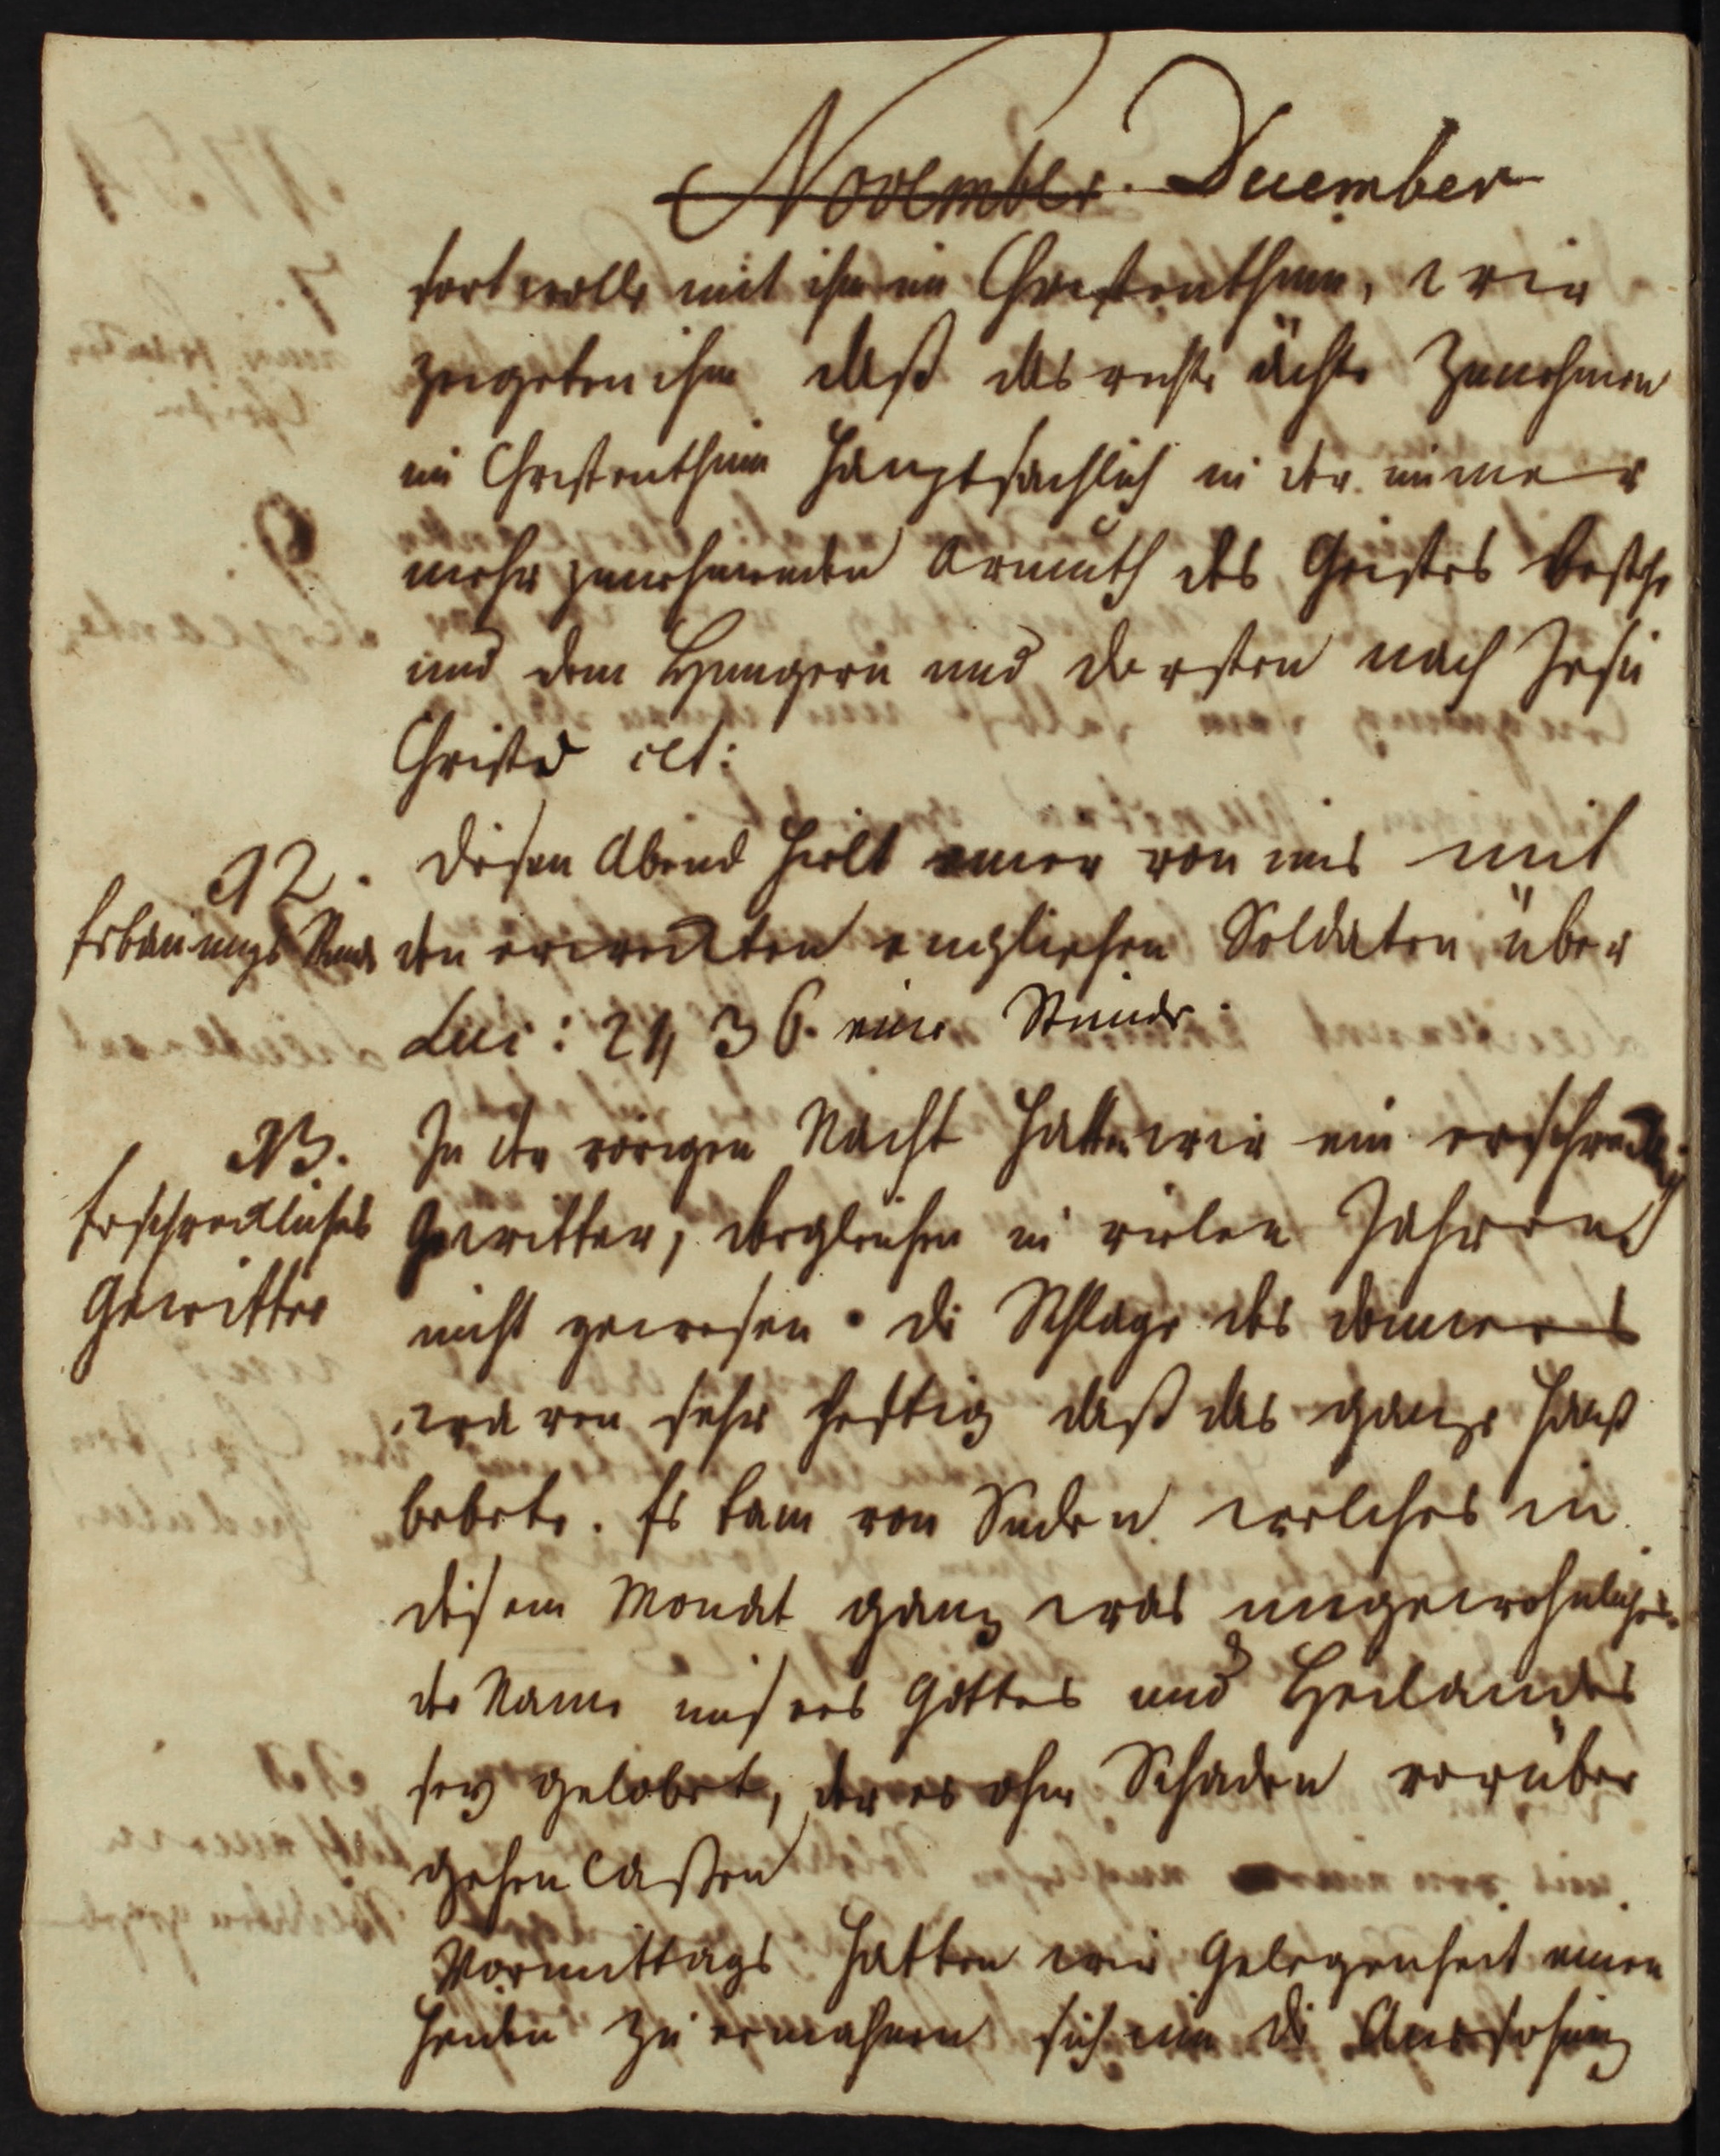 November. December
fort wolle mit ihm im Christenthum, wir
zeigeten ihm daß das rechte ächte Zunehmen
im Christenthum hauptsächlich in der immer
mehr zunehmenden Armuth des Geistes bestehe
und dem Hungern und dersten nach Jesu
Christo ect:
12.
Erbauungs Stunde
Diesen Abend hielt einer von uns mit
den erweckten englischen Soldaten über
Luc: 24, 36. eine Stunde.
13.
Erschreckliches
Gewitter
In der vorigen Nacht hatten wir ein erschrecklich
Gewitter, dergleichen in vielen Jahren
nicht gewesen. die Schläge des donners
waren sehr heftig daß das ganze Hauß
bebete. Es kam von Suden welches in
diesem Monat ganz was ungewohnliches.
der Name unsers Gottes und Heilandes
sey gelobet, der es ohne Schaden vorüber
gehen laßen
Vormittags hatten wir Gelegenheit einen
Heiden zu ermahnen sich um die Aussohnung